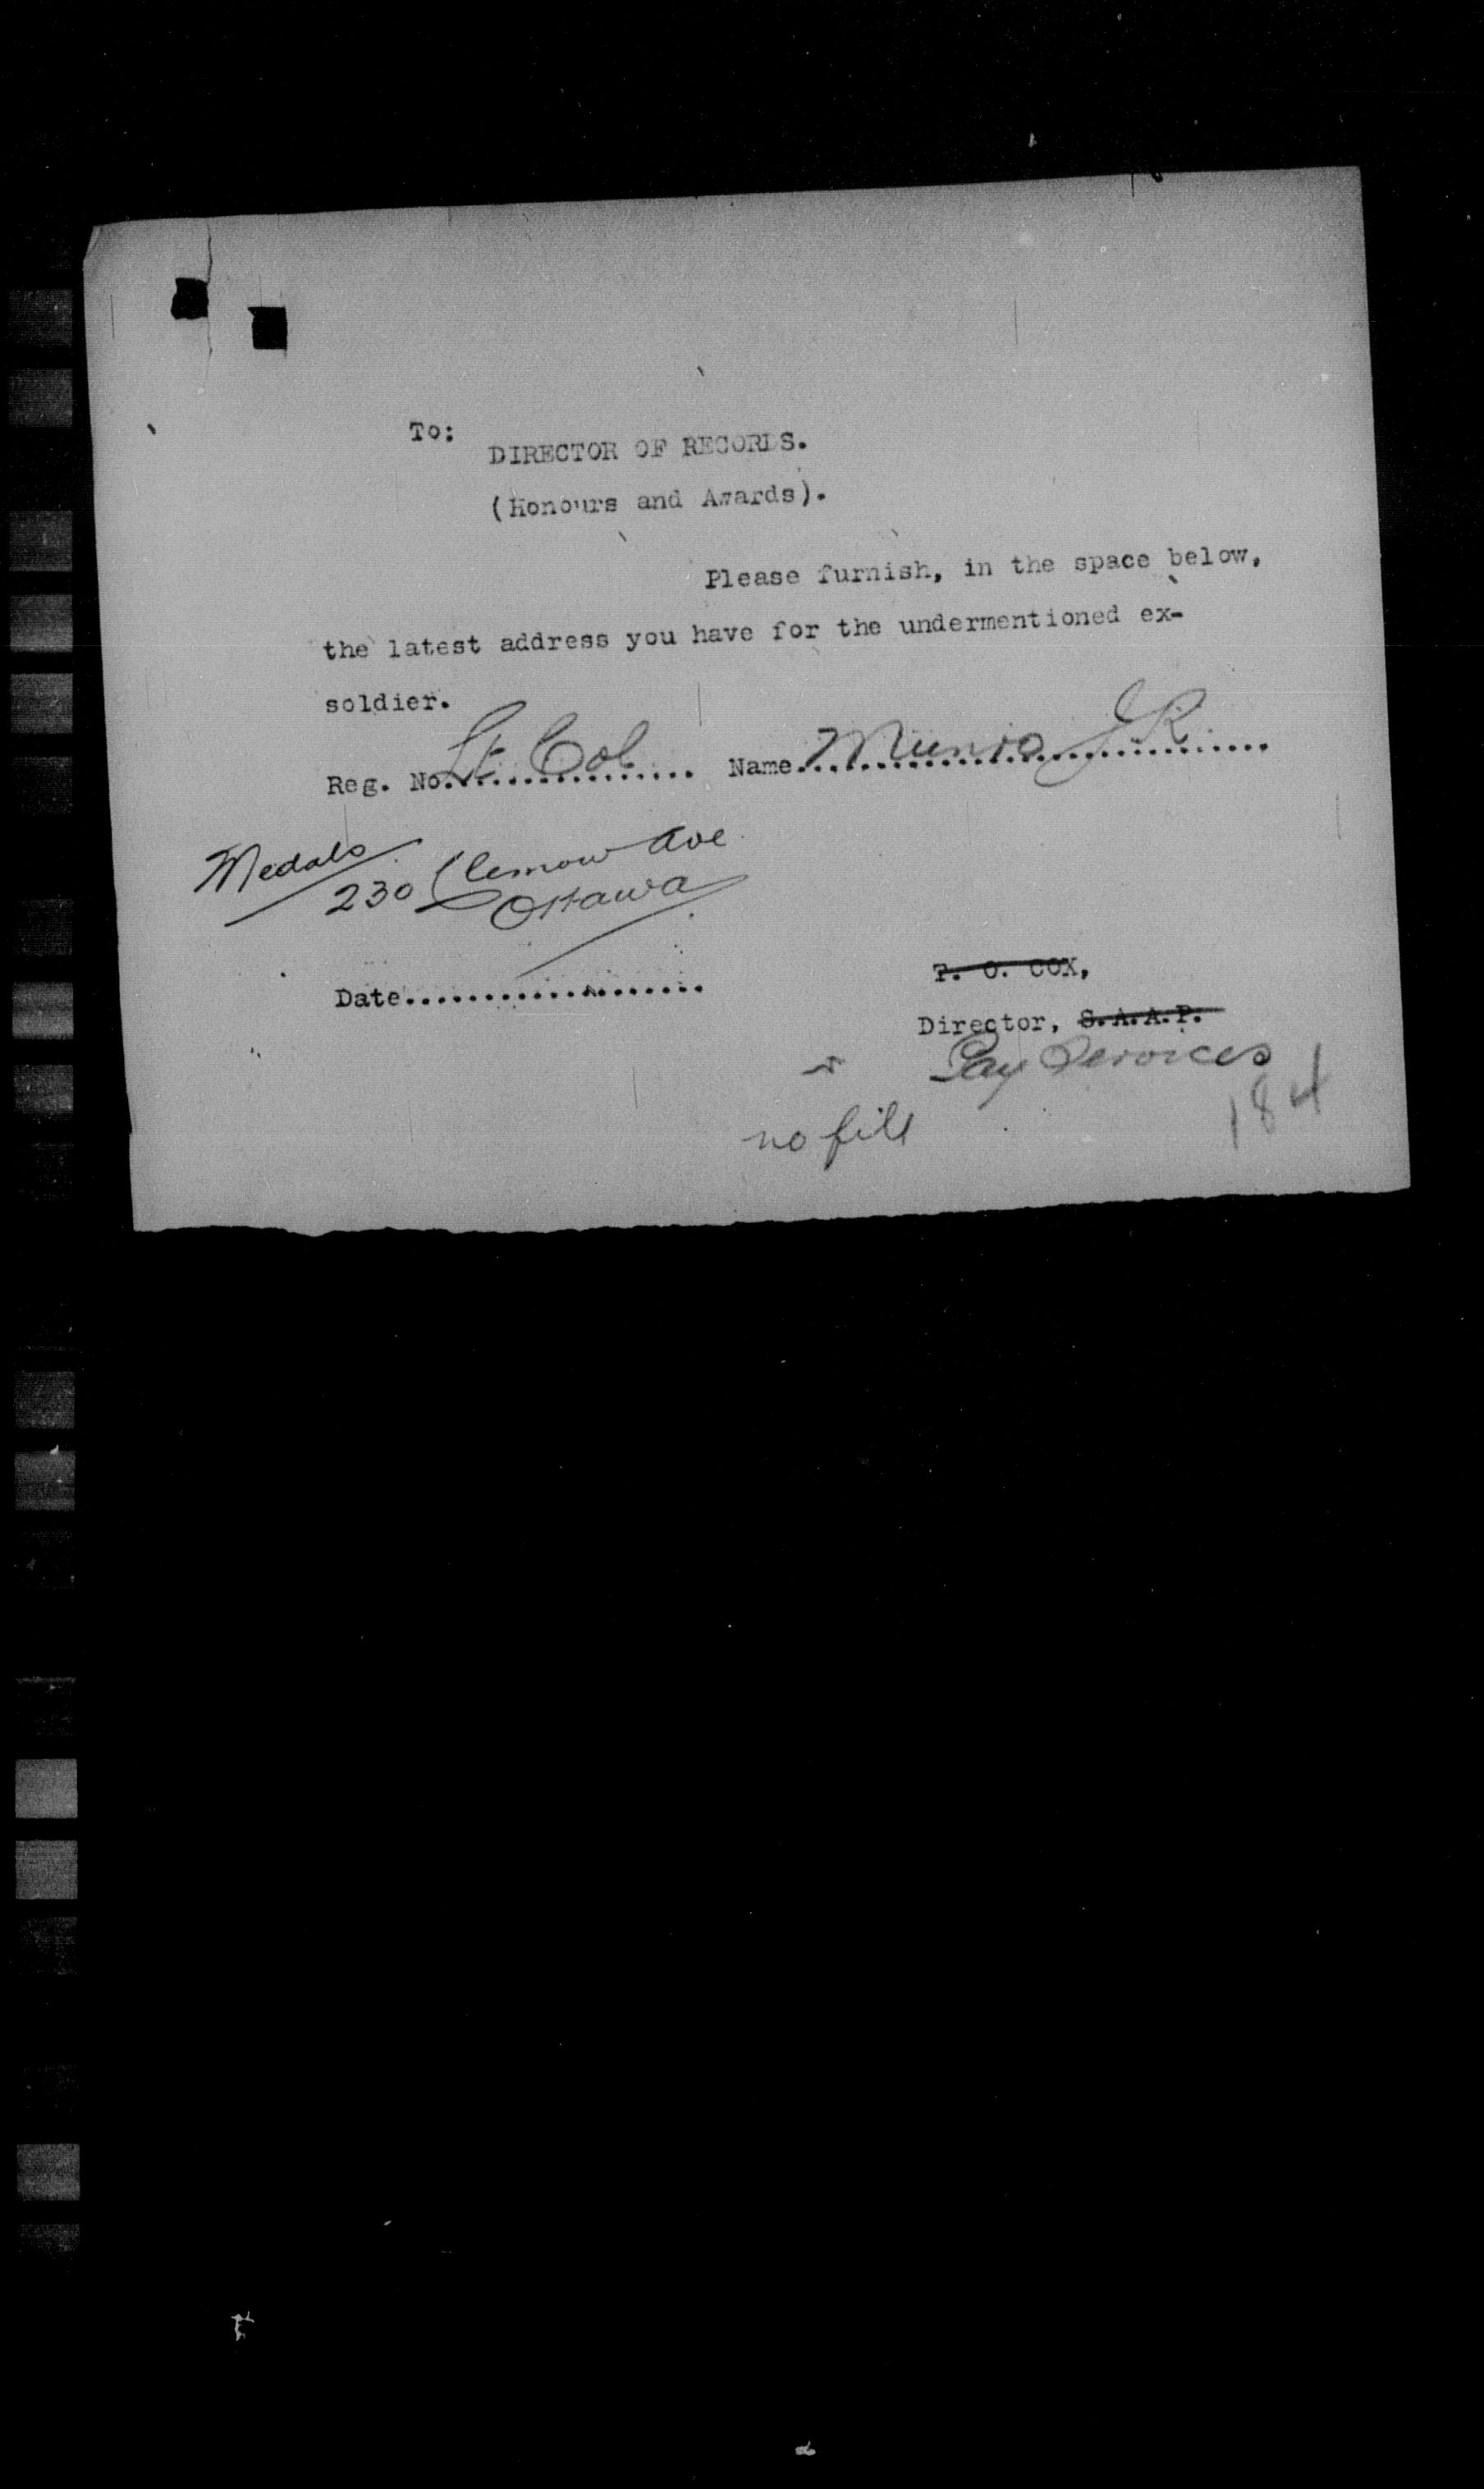 To:
DIRECTOR OF RECORDS.
(Honours and Awards).
Please furnish, in the space below,
the latest address you have for the undermentioned ex-
soldier.
Reg. No. Lt Col................ Name Munro J R..............................
Medals
230 Clemow Ave
Ottawa
Date...................
T. O. COX,
Director, S.A.A.P.
Pay Services
184
no file